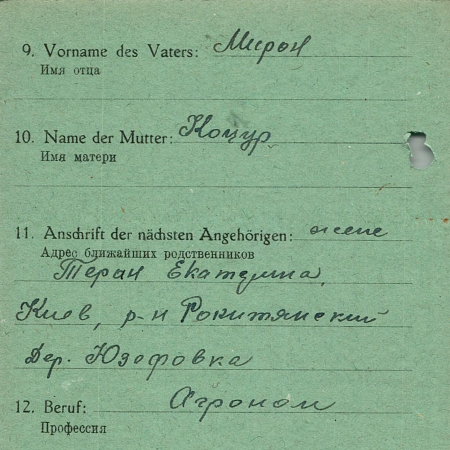 9. Vorname des Vaters: Мирон
Имя отца
10. Name der Mutter: Коцур
Имя матери
11. Anschrift der nächsten Angehörigen: жене
Адрес ближайших родственников
Теран Екатерина
Киев, р-н Рокитянский
Дер. Юзефовка
12. Beruf: Агроном
Профессия